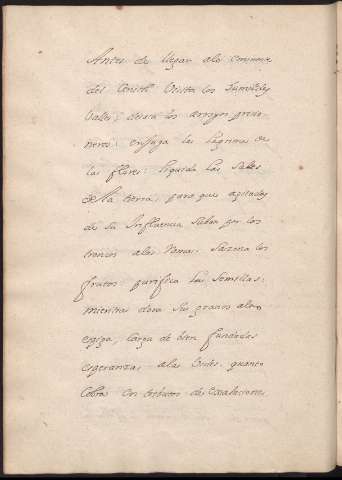 Antes de llegar ala cumbre
del Zenith Visita los humildes
Valles: desata los arroyos
neros: enjuga las lagrimas de
las flores: liquida las Sales
dela tierra, para que agitadas
de su Influencia suban por los
troncos alas Ramas. Sazona los
frutos: purifica las Semillas:
mientras dora sus granos ala
espiga, carga de bien fundadas
esperanzas alas Trojes. quanto
Cobra en tributos de exalaciones,